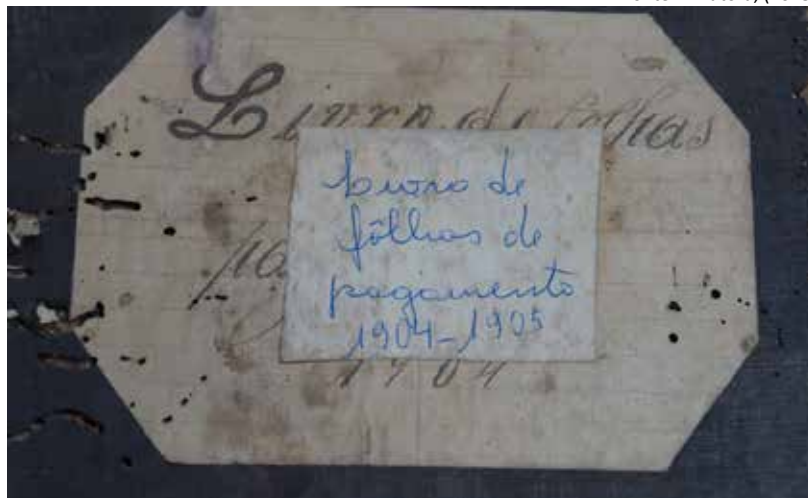 Livro de folhas
Livro de
fôlhas de
pagamento
1904-1905
1904